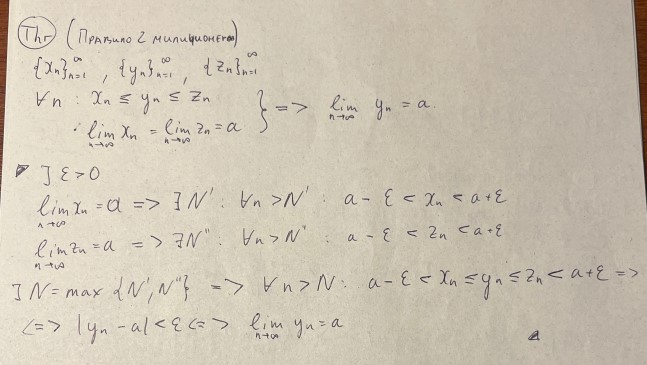 Thr (Правило 2 милиционеров)
{xₙ}ₙ₌₁^∞ , {yₙ}ₙ₌₁^∞ , {zₙ}ₙ₌₁^∞
∀n : xₙ ≤ yₙ ≤ zₙ } => lim n→∞ yₙ = a.
lim n→∞ xₙ = lim n→∞ zₙ = a
] ε > 0
lim n→∞ xₙ = a => ∃N' : ∀n > N' : a - ε < xₙ < a + ε
lim n→∞ zₙ = a => ∃N'' : ∀n > N'' : a - ε < zₙ < a + ε
] N = max {N', N''} => ∀n > N : a - ε < xₙ ≤ yₙ ≤ zₙ < a + ε =>
<=> |yₙ - a| < ε <=> lim n→∞ yₙ = a